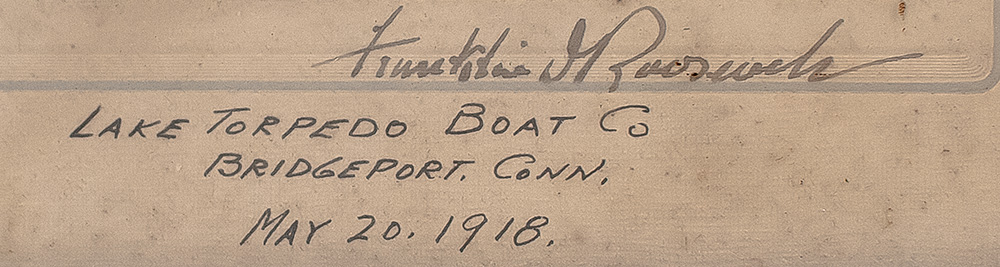 Franklin D Roosevelt
LAKE TORPEDO BOAT CO
BRIDGEPORT. CONN.
MAY 20. 1918.